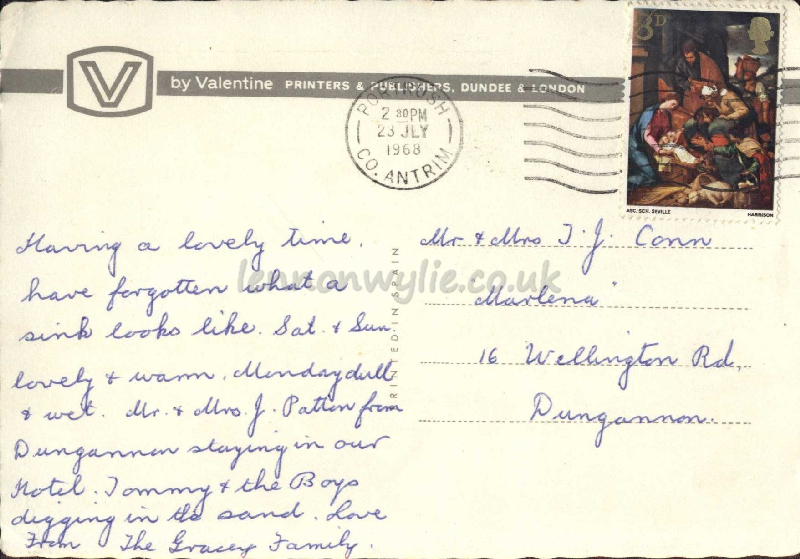 V
by Valentine PRINTERS & PUBLISHERS, DUNDEE & LONDON
PORTRUSH
2 30PM
23 JLY
1968
CO. ANTRIM
8D
ARC. SCH. SEVILLE
HARRISON
Having a lovely time,
have forgotten what a
sink looks like. Sat. & Sun.
lovely & warm. Monday dull
& wet. Mr. & Mrs. J. Patton from
Dungannon staying in our
Hotel. Tommy & the Boys
digging in the sand. Love
From The Gracey Family.
PRINTED IN SPAIN
Mr & Mrs T. J. Conn
"Marlena"
16 Wellington Rd,
Dungannon.
lennonwylie.co.uk